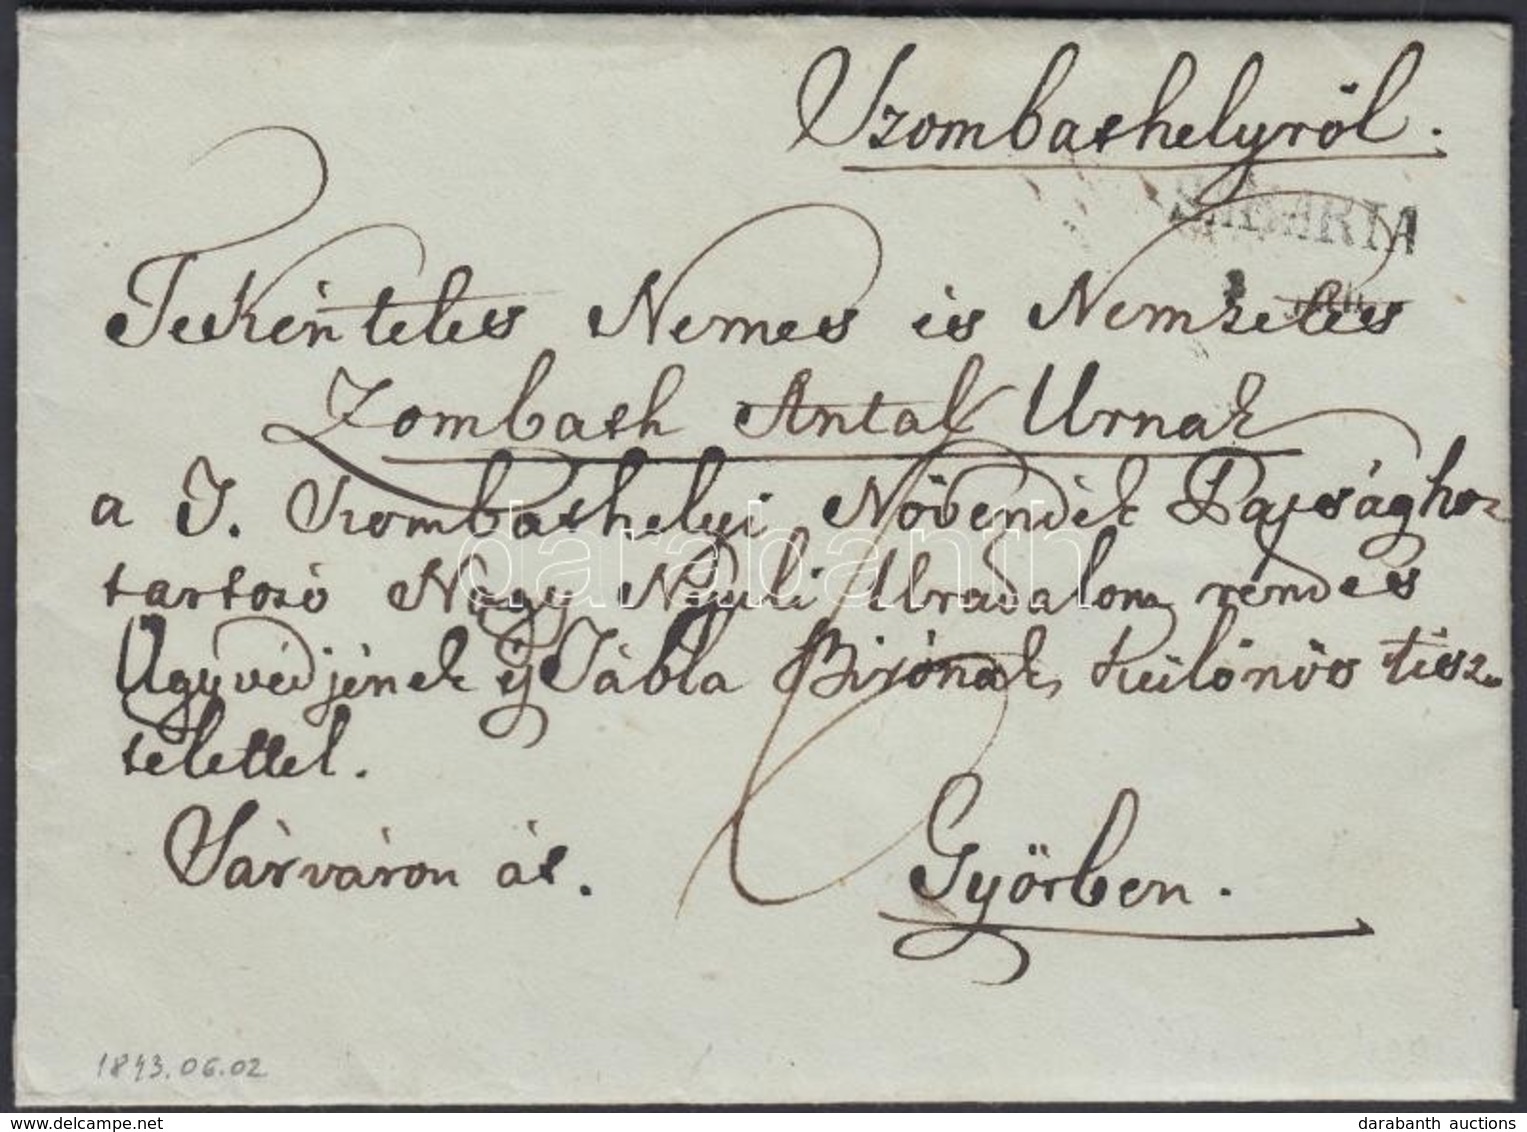 Szombathelyröl.
SABARIA
Tekéntetes Nemes és Nemzetes
Zombath Antal Urnak
a T. Szombathelyi Növendék Papsághoz
tartozó Nagy Nyuli Uradalom rendes
Ügyvédjének 's Tábla Birónak különös tisz-
telettel.
Sárváron át.
Györben.
1843.06.02
darabanth
darabanth auctions